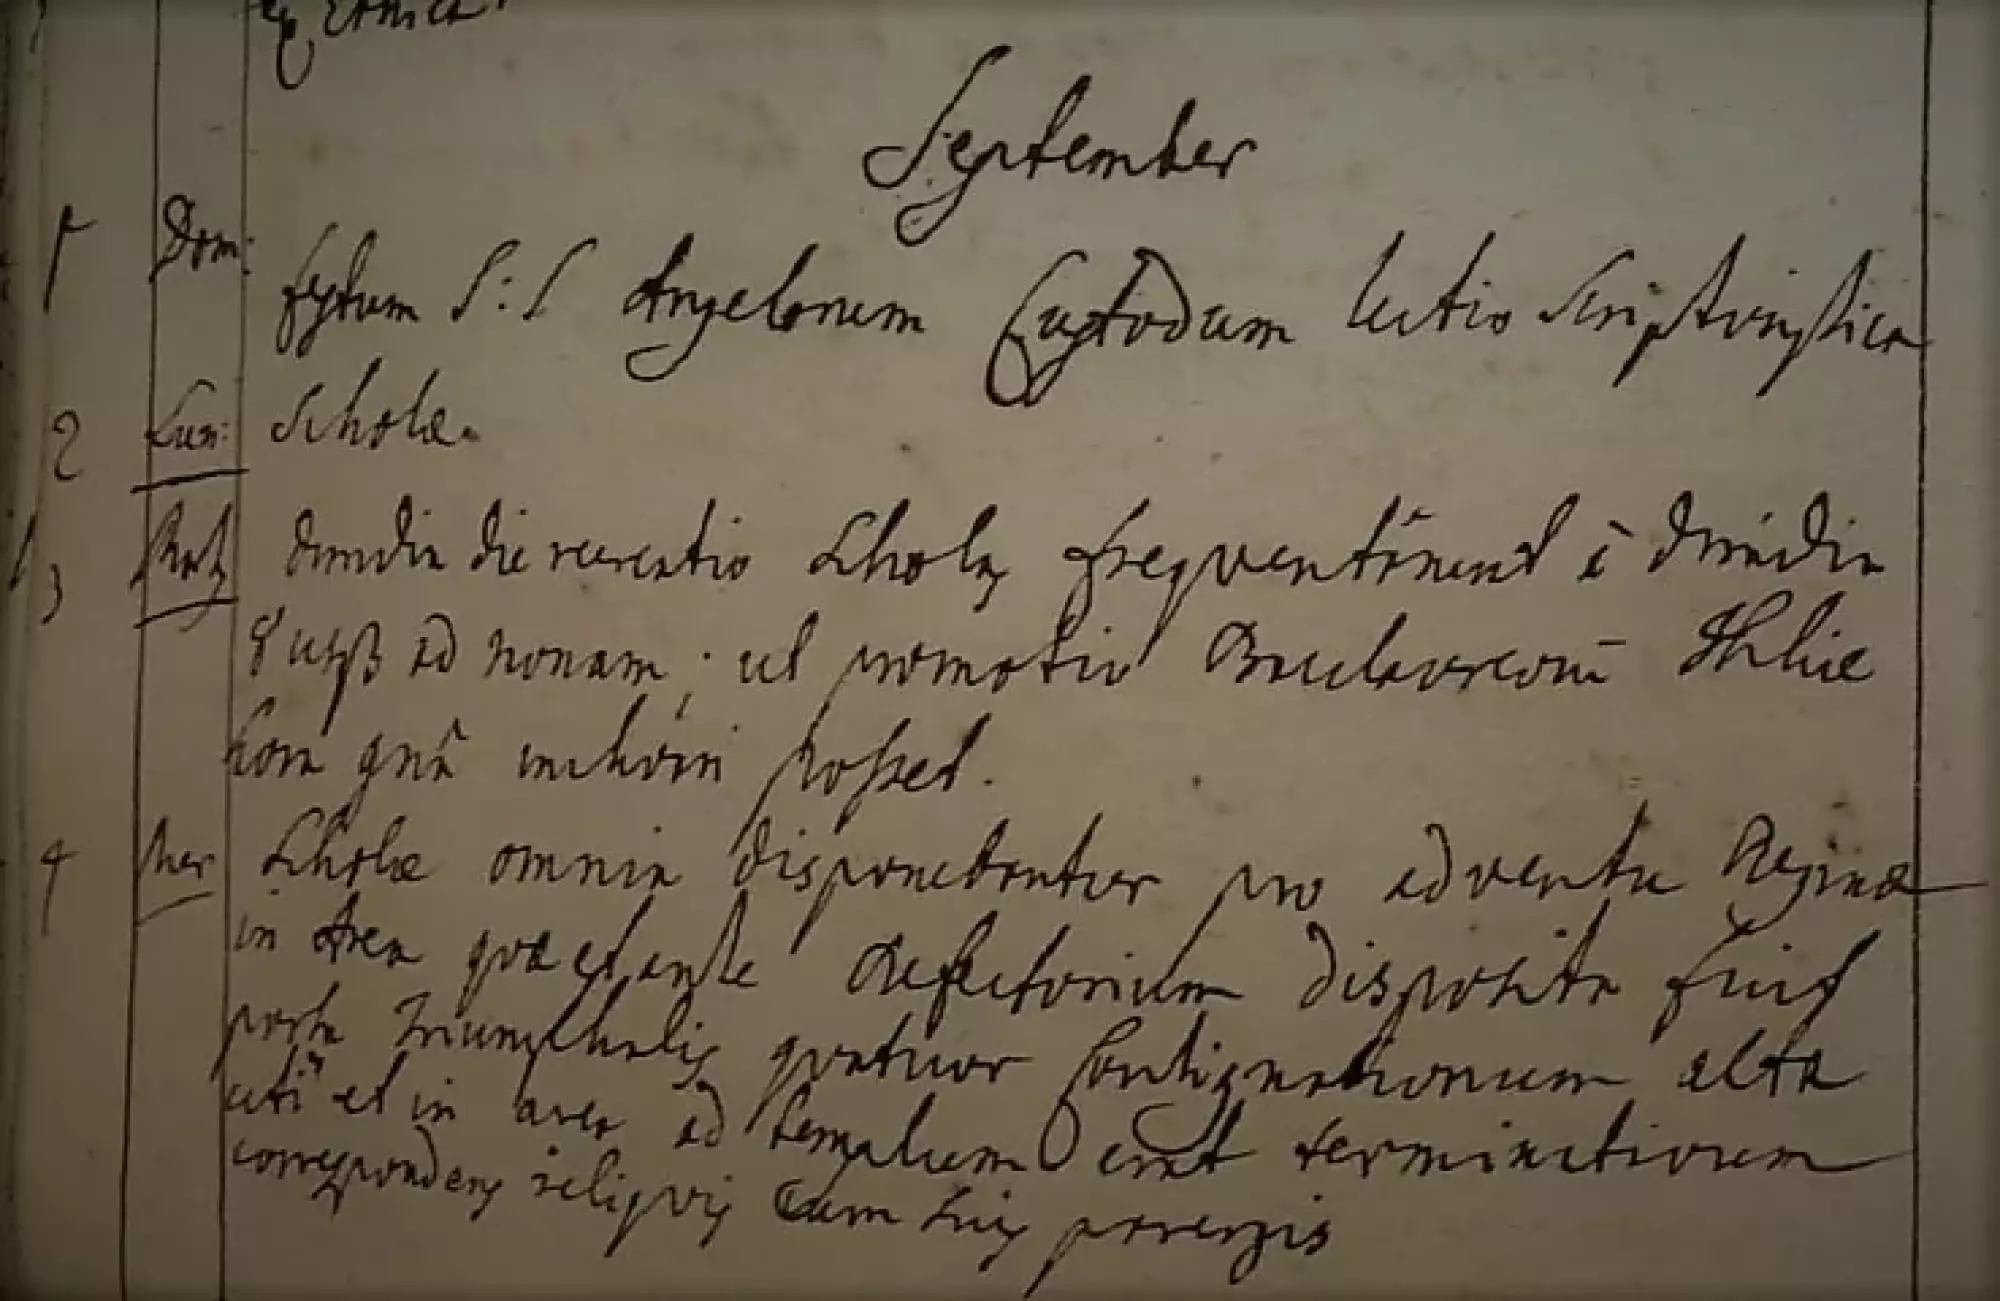 Ethica.
September
1 Dom: festum S: S Angelorum Custodum lectio Scripturistica
2 Lun: Scholæ.
3 Mart dimidia die recreatio Scholæ frequentârunt à dimidia
8 usq ad nonam; ut promotio Baccalaureorū Publicæ
hora nonâ inchoari posset.
4 Mer Scholæ omnia disponebantur pro adventu Reginæ
in Area quæ est ante Refectorium disposita fuit
porta triumphalis quatuor Contignationum alta
uti et in area ad templum erat terminativum
correspondens reliquis cum suis